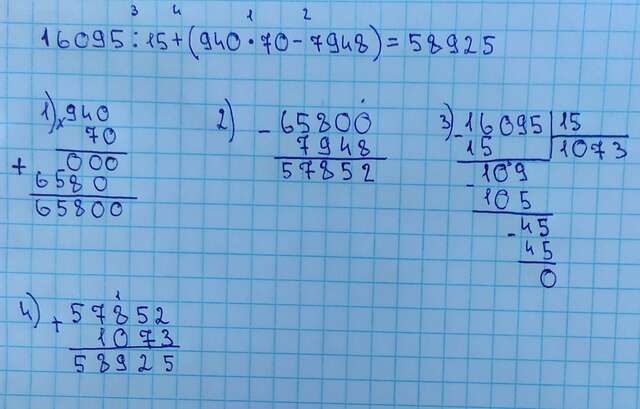 3 4 1 2
16095:15+(940·70-7948)=58925
1) ×940
70
+ 000
6580
65800
2) -65800
7948
57852
3) -16095 | 15
15 | 1073
-109
105
-45
45
0
4) + 57852
1073
58925